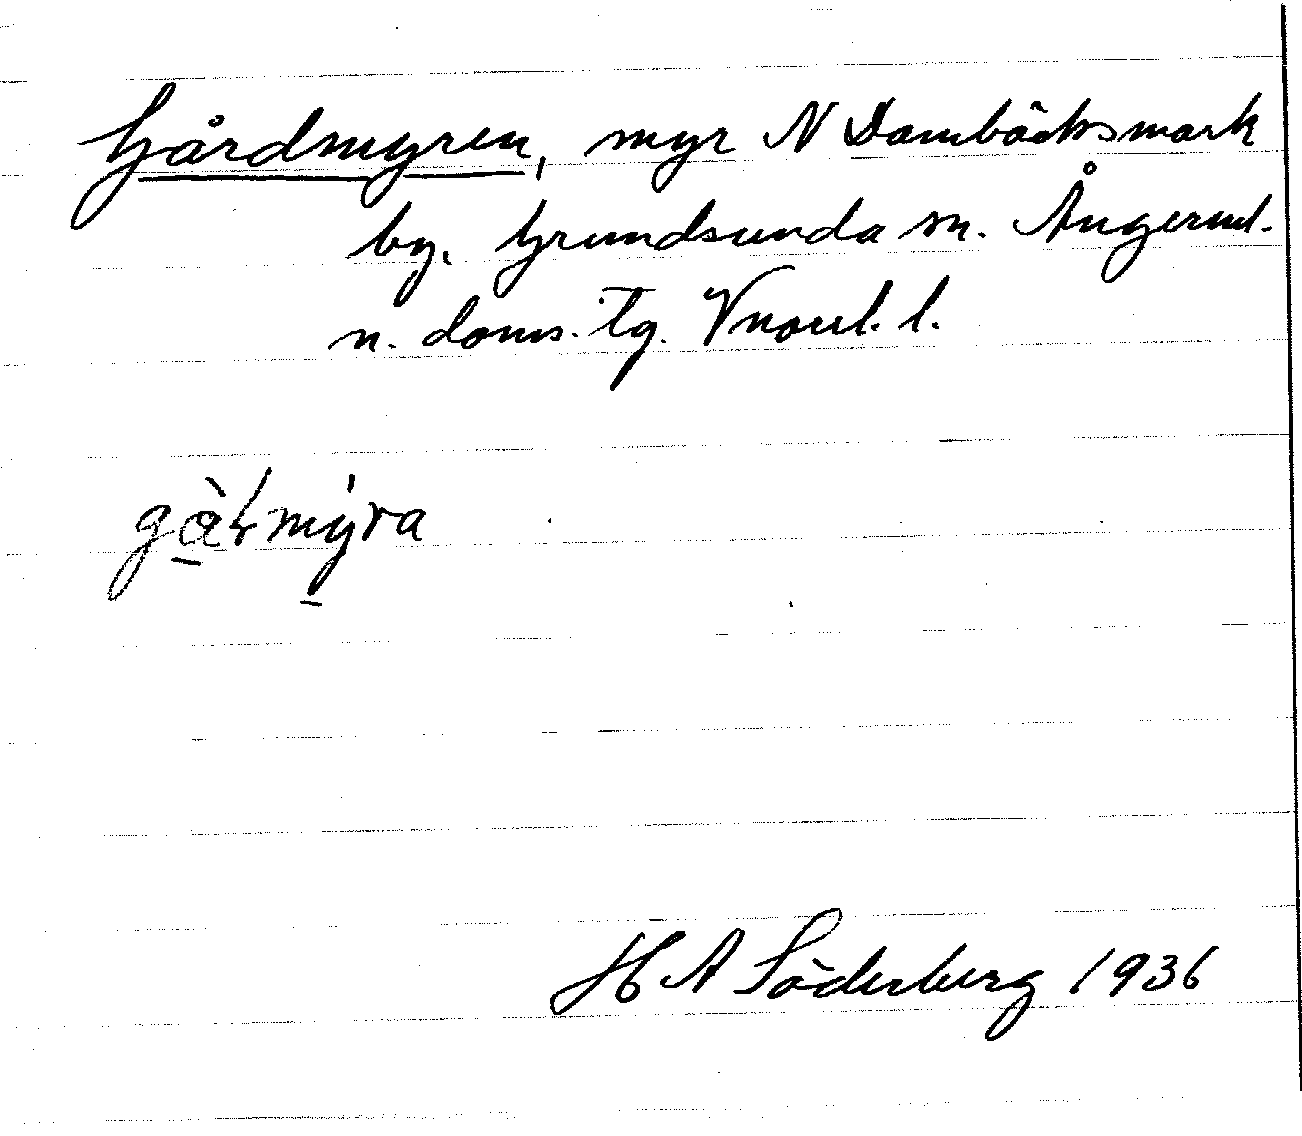 Gårdmyren, myr N Dombäcksmark
by. Grundsunda sn. Ångerml.
n. doms. tg. Vnorrl. l.
gàrmýra
H A Söderberg 1936